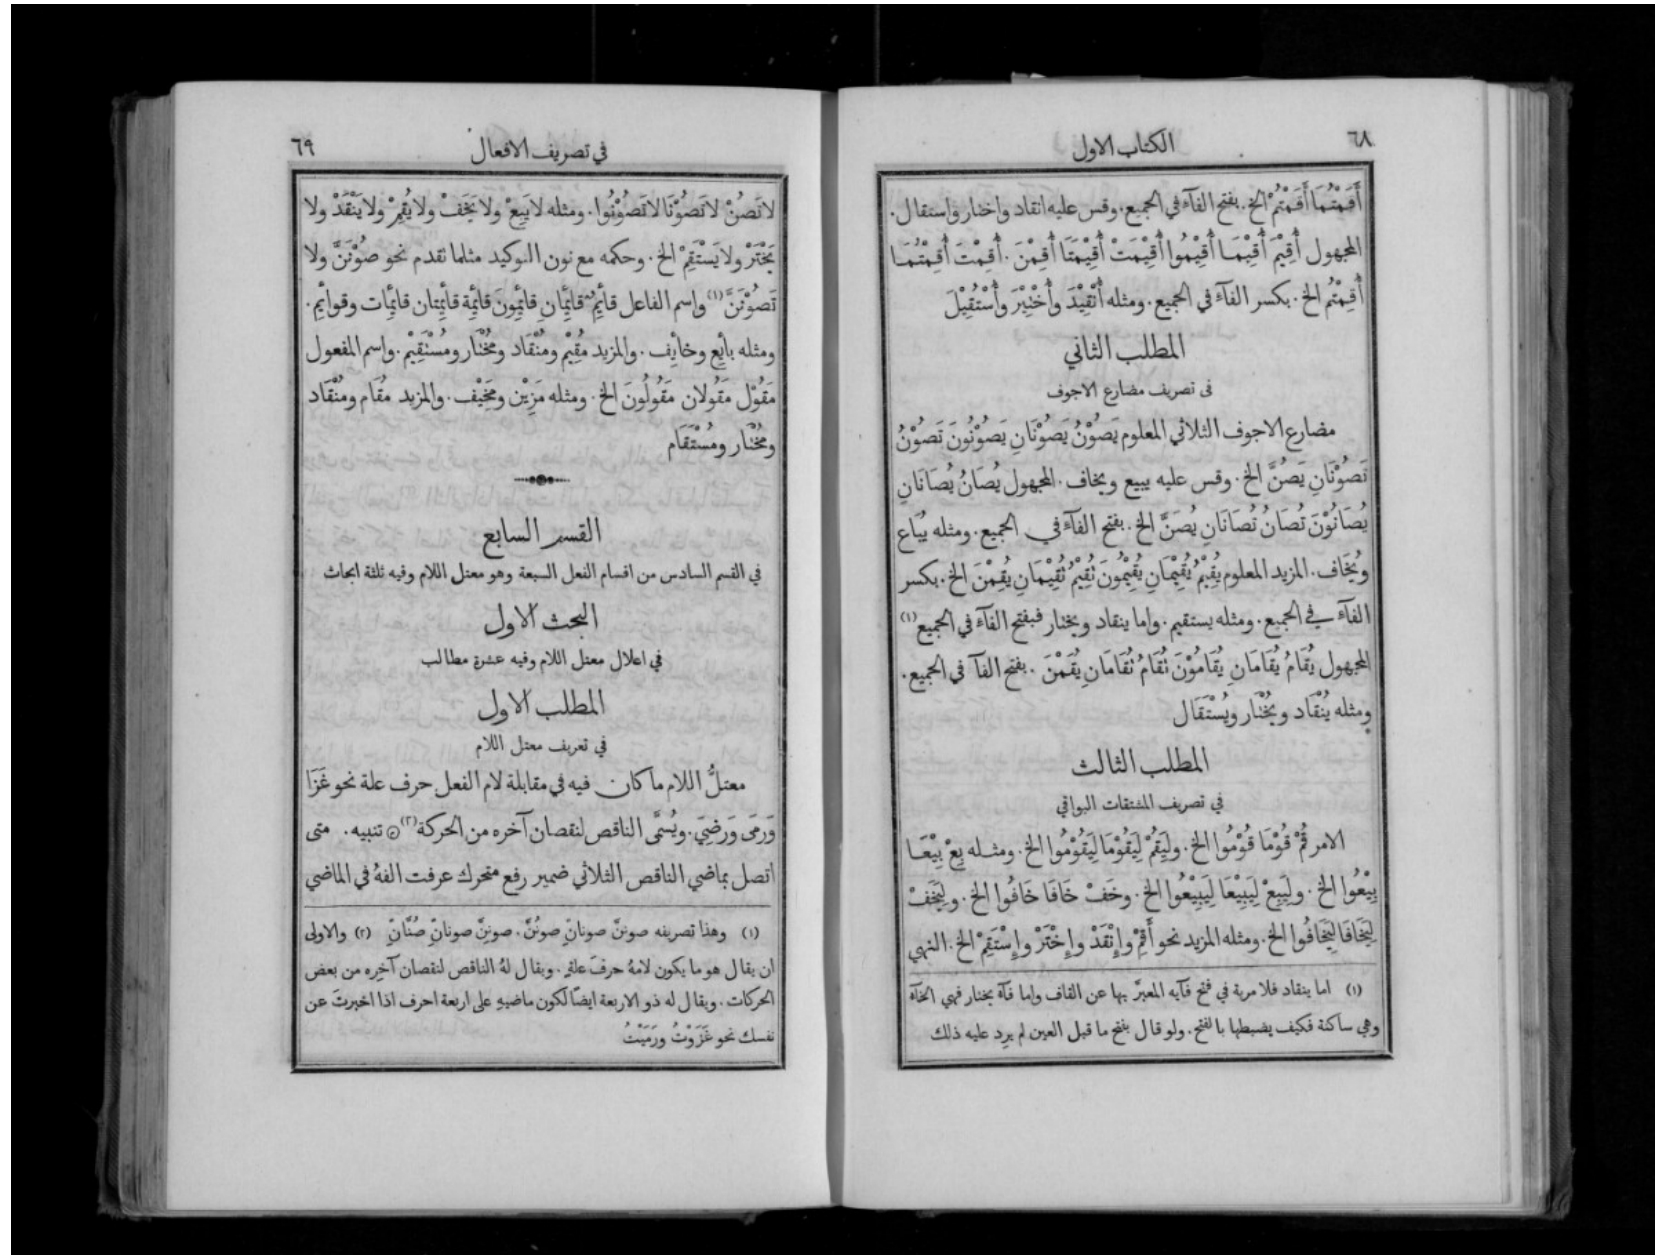 ٦٨
الكتاب الاول
أَقَمْتُمَا أَقَمْتُمْ الخ. بفتح الفآء في الجميع. وقس عليه انقاد واختار واستقال.
المجهول أُقِيْمَ أُقِيْمَا أُقِيْمُوا أُقِيْمَتْ أُقِيْمَتَا أُقِمْنَ. أُقِمْتَ أُقِمْتُمَا
أُقِمْتُم الخ. بكسر الفآء في الجميع. ومثله أُنْقِيْدَ وأُخْتِيْرَ وأُسْتُقِيْلَ
المطلب الثاني
في تصريف مضارع الاجوف
مضارع الاجوف الثلاثي المعلوم يَصُوْنُ يَصُوْنَانِ يَصُوْنُونَ تَصُوْنُ
تَصُوْنَانِ يَصُنَّ الخ. وقس عليه يبيع ويخاف. المجهول يُصَانُ يُصَانَانِ
يُصَانُوْنَ تُصَانُ تُصَانَانِ يُصَنَّ الخ. بفتح الفآء في الجميع. ومثله يُبَاع
ويُخَاف. المزيد المعلوم يُقِيْمُ يُقِيْمَانِ يُقِيْمُونَ تُقِيْمُ تُقِيْمَانِ يُقِمْنَ الخ. بكسر
الفآء في الجميع. ومثله يستقيم. واما ينقاد ويختار فبفتح الفآء في الجميع (١)
المجهول يُقَامُ يُقَامَانِ يُقَامُوْنَ تُقَامُ تُقَامَانِ يُقَمْنَ. بفتح الفآ في الجميع.
ومثله يُنْقَاد ويُخْتَار ويُسْتَقَال
المطلب الثالث
في تصريف المشتقات البواقي
الامر قُمْ قُوْمَا قُوْمُوا الخ. ولِيَقُمْ لِيَقُوْمَا لِيَقُوْمُوا الخ. ومثله بِعْ بِيْعَا
بِيْعُوا الخ. ولِيَبِعْ لِيَبِيْعَا لِيَبِيْعُوا الخ. وخَفْ خَافَا خَافُوا الخ. ولِيَخَفْ
لِيَخَافَا لِيَخَافُوا الخ. ومثله المزيد نحو أَقِمْ وإِنْقَدْ وإِخْتَرْ وإِسْتَقِمْ الخ. النهي
(١) اما ينقاد فلا مرية في فتح فآيه المعبَّر بها عن القاف واما فآء يختار فهي الخآء
وهي ساكنة فكيف يضبطها بالفتح. ولو قال بفتح ما قبل العين لم يرد عليه ذلك
في تصريف الافعال
٦٩
لا تَصُنْ لا تَصُوْنَا لا تَصُوْنُوا. ومثله لا يَبِعْ ولا يَخَفْ ولا يُقِمْ ولا يَنْقَدْ ولا
يَخْتَرْ ولا يَسْتَقِمْ الخ. وحكمه مع نون التوكيد مثلما تقدم نحو صُوْنَنَّ ولا
تَصُوْنَنَّ (١) واسم الفاعل قائِمٌ قائِمَانِ قائِمُونَ قائِمَة قائِمتان قائِمَات وقوائِم.
ومثله بائِع وخايِف. والمزيد مُقِيْم ومُنْقَاد ومُخْتَار ومُسْتَقِيْم. واسم المفعول
مَقُوْل مَقُولان مَقُولُونَ الخ. ومثله مَزِيْن ومَخِيْف. والمزيد مُقَام ومُنْقَاد
ومُخْتَار ومُسْتَقَام
القسم السابع
في القسم السادس من اقسام الفعل السبعة وهو معتل اللام وفيه ثلثة ابحاث
البحث الاول
في اعلال معتل اللام وفيه عشرة مطالب
المطلب الاول
في تعريف معتل اللام
معتلُّ اللام ما كان فيه في مقابلة لام الفعل حرف علة نحو غَزَا
وَرمَى وَرضِيَ. ويُسمَّى الناقص لنقصان آخره من الحركة (٢) ۞ تنبيه. متى
اتصل بماضي الناقص الثلاثي ضمير رفع متحرك عرفت الفهُ في الماضي
(١) وهذا تصريفه صوننَّ صونانِّ صونُنَّ. صونِنَّ صونانِّ صُنَّانِّ (٢) والاولى
ان يقال هو ما يكون لامهُ حرفَ علةٍ. ويقال لهُ الناقص لنقصان آخِره من بعض
الحركات. ويقال له ذو الاربعة ايضًا لكون ماضيهِ على اربعة احرف اذا اخبرتَ عن
نفسك نحو غَزَوْتُ ورَمَيْتُ